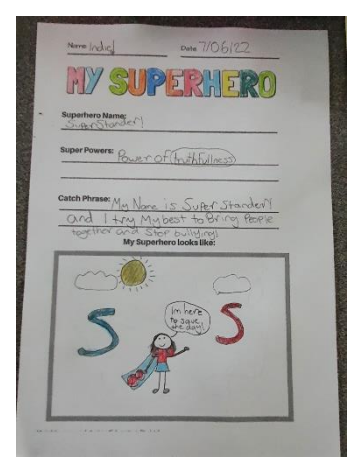 Name Indie
Date 7/06/22
MY SUPERHERO
Superhero Name:
Super Stander!
Super Powers: Power of truthfullness
Catch Phrase: My Name is Super Stander!
and I try My best to Bring People
together and Stop bullying!
My Superhero looks like:
S
S
Im here
to save
the day!